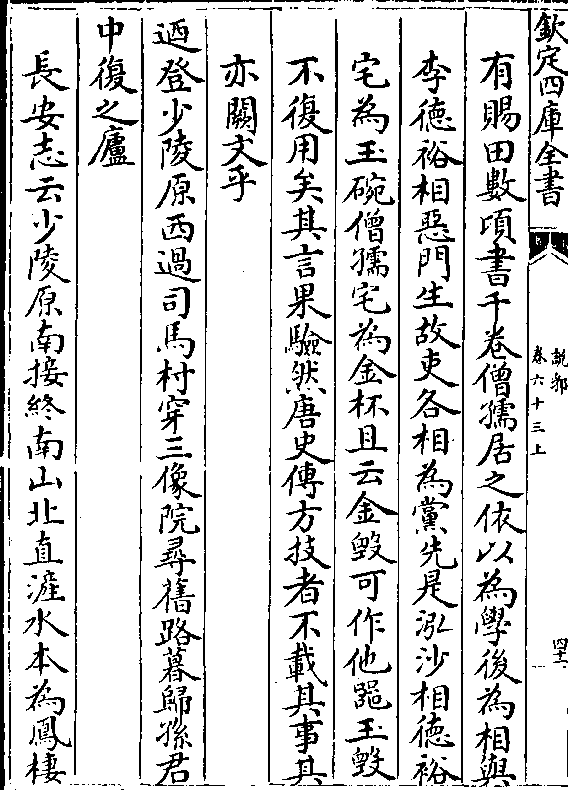 欽定四庫全書
說郛
卷六十三上
有賜田數項書千卷僧孺居之依以為學後為相與
李德裕相惡門生故吏各相為黨先是泓沙相德裕
宅為玉碗僧孺宅為金杯且云金毀可作他器玉毀
不復用矣其言果驗然唐史傳方技者不載其事其
亦闕文乎
迺登少陵原西過司馬村穿三像院尋舊路暮歸孫君
中復之廬
長安志云少陵原南接終南山北直滻水本為鳳棲